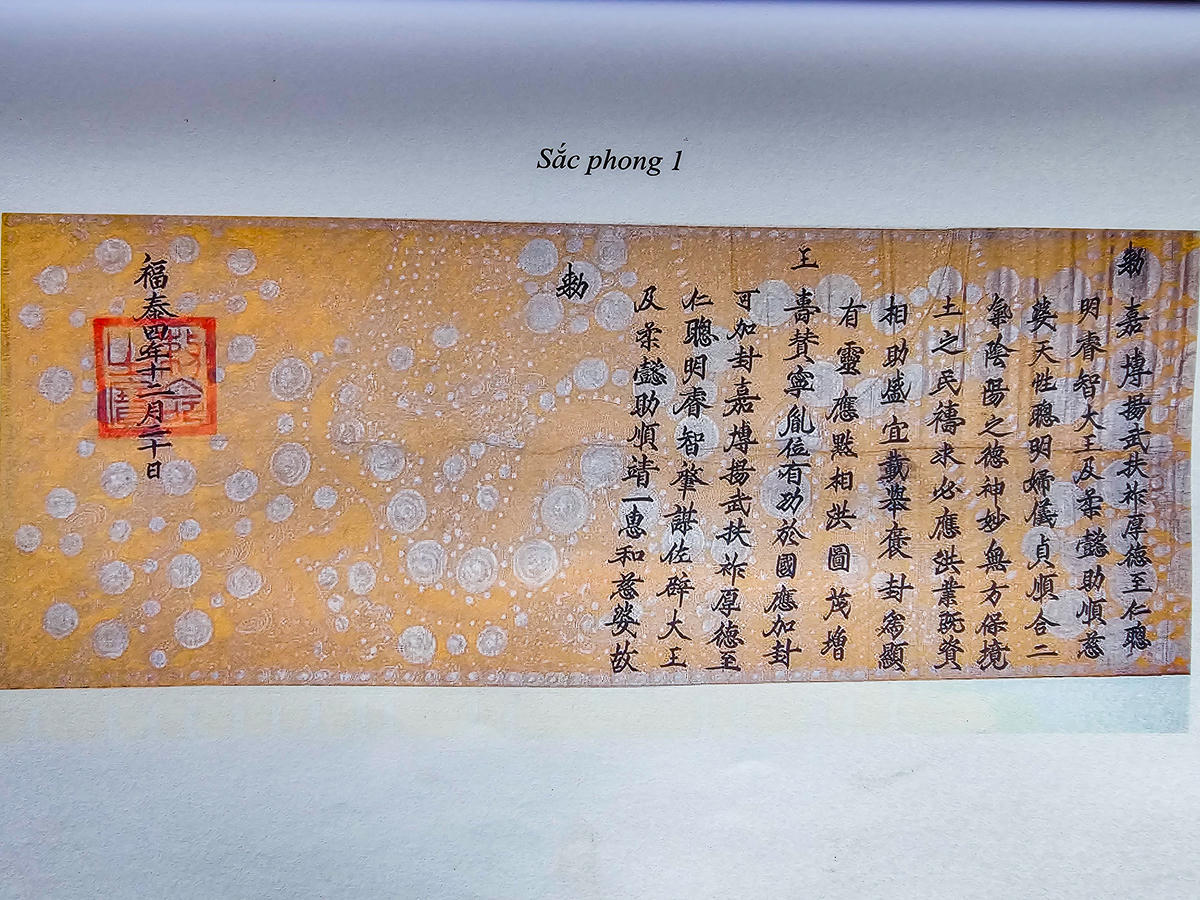 Sắc phong 1
勅嘉博揚武扶祚厚德至仁聰
明睿智大王及柔懿助順慈
婆天性聰明婦儀貞順合二
氣陰陽之德神妙無方保境
土之民禱求必應洪業既資
相助盛宜載舉褒封爲顯
有靈應默相洪圖茂增
王壽贊寧胤位有功於國應加封
可加封嘉博揚武扶祚厚德至
仁聰明睿智肇謀佐辟大王
及柔懿助順靖一惠和慈婆故
勅
福泰四年十二月二十日